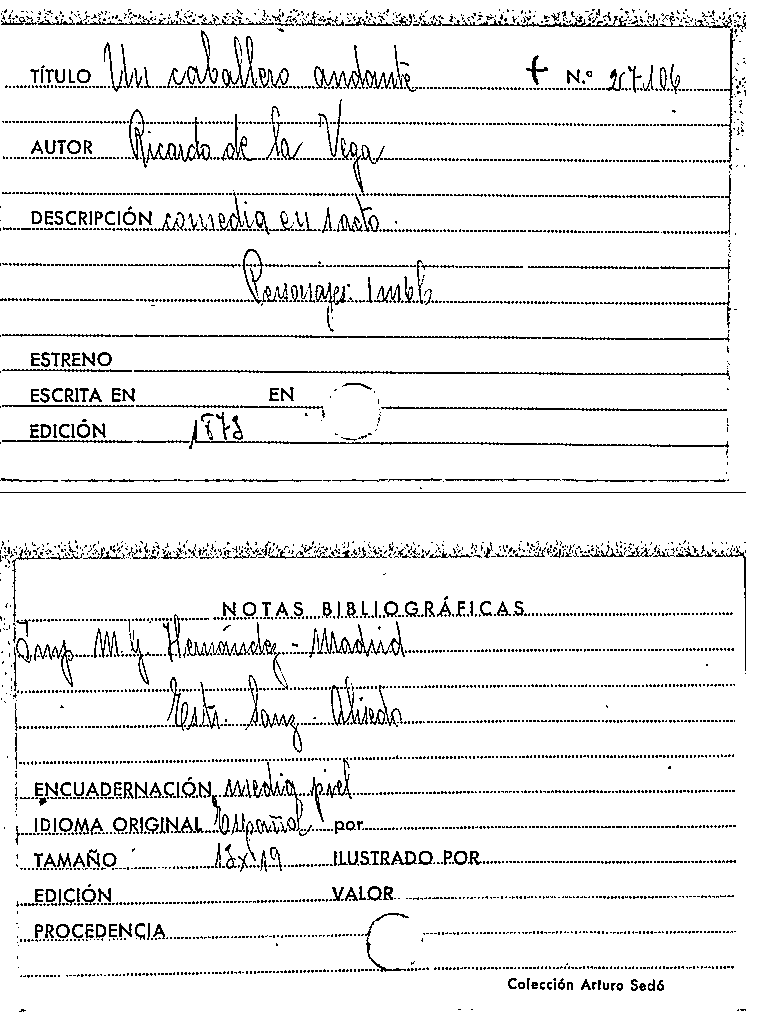 TÍTULO Un caballero andante + N.º 27106
AUTOR Ricardo de la Vega
DESCRIPCIÓN comedia en 1 acto.
Personajes: 1 m 6 h
ESTRENO
ESCRITA EN EN
EDICIÓN 1873
NOTAS BIBLIOGRÁFICAS
Imp M. G. Hernández - Madrid
Estr. Sanz -
ENCUADERNACIÓN media piel
IDIOMA ORIGINAL Español por
TAMAÑO 13x19 ILUSTRADO POR
EDICIÓN VALOR
PROCEDENCIA
Colección Arturo Sedó